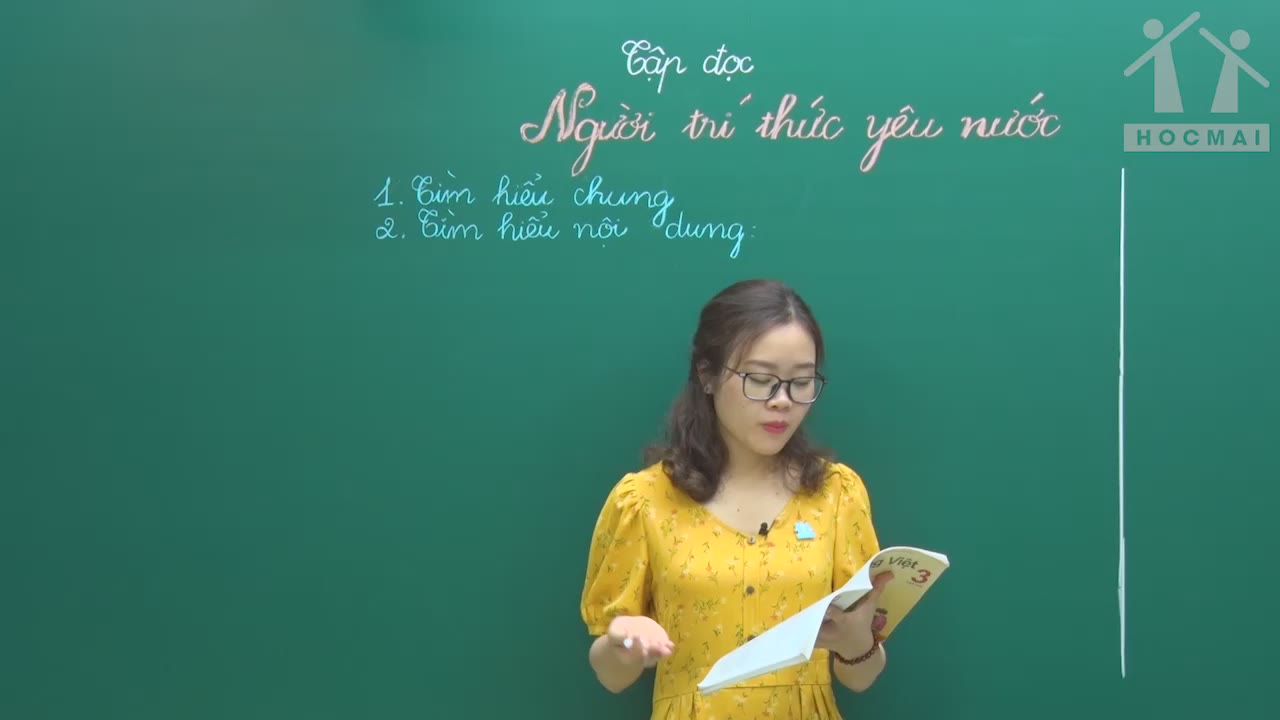 Tập đọc
Người trí thức yêu nước
1. Tìm hiểu chung
2. Tìm hiểu nội dung:
HOCMAI
g Việt 3